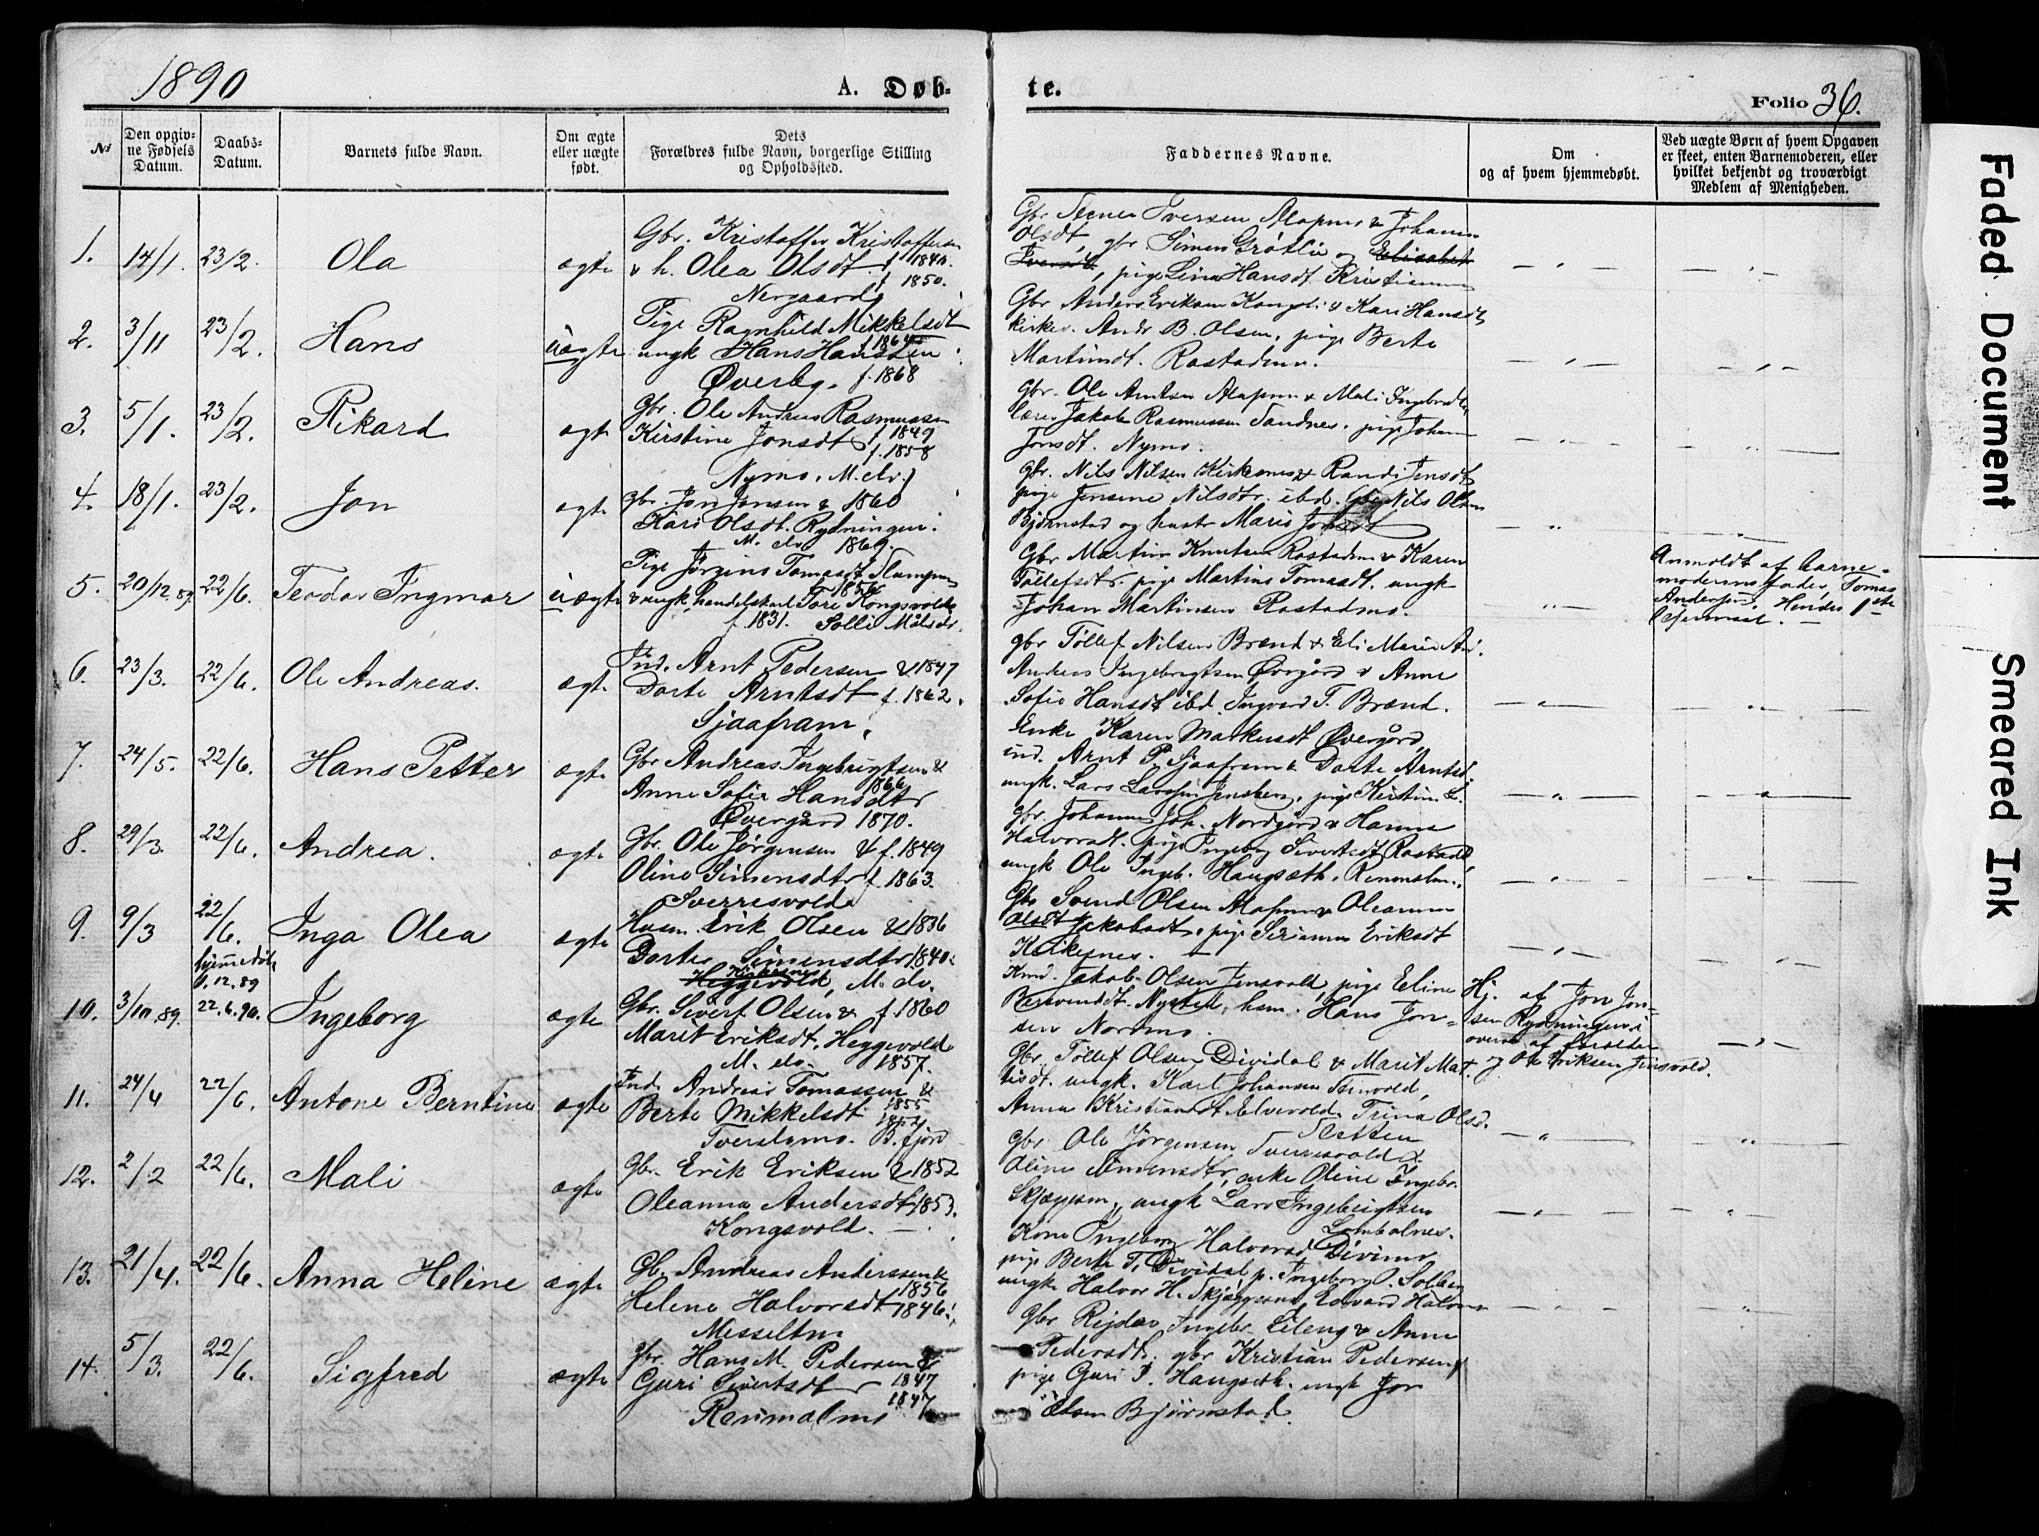 1890
A. Døb-
te.
Folio 36.
№
Den opgiv-
ne Fødsels
Datum.
Daabs-
Datum.
Barnets fulde Navn.
Om ægte
eller uægte
født.
Dets
Forældres fulde Navn, borgerlige Stilling
og Opholdssted.
Faddernes Navne.
Om
og af hvem hjemmedøbt.
Ved uægte Børn af hvem Opgaven
er skeet, enten Barnemoderen, eller
hvilket bekjendt og troværdigt
Medlem af Menigheden.
1. 14/1. 23/2. Ola ægte
Gbr. Kristoffer Kristoffersen
& h. Olea Olsdt. f. 1840.
f. 1850.
Nergaard
Gbr. Iversen & Johanna
Olsdt, gbr Simen Grøtli og Elisabet
Iversdt, pige Lina Hansdt Kristian
2. 3/11 23/2. Hans uægte
Pige Ragnhild Mikkelsdt
f 1864
ungk Hans Hansen
Øverby. f. 1868
Gbr Anders Eriksen Kongsli & Kari Hansdt
Kirkes. Andr B. Olsen, pige Berte
Martinsdt. Rostadmo.
3. 5/1. 23/2. Rikard ægte
Gbr. Ole Andreas Rasmussen
Kirstine Jonsdt f. 1849
f. 1858
Nymo, M.elv.
Gbr. Ole Arntsen & Mali Ingebr
Lærer Jakob Rasmussen Sandnes. pige Johan
Jonsdt. Nymo.
4. 18/1. 23/2. Jon ægte
gbr. Jon Jonsen & 1860
Kari Olsdt. Rydningen.
M. elv 1869.
gbr. Nils Nilsen Kirkesnes & Randi Jensdt
pige Jensine Nilsdtr. ibd. Gbr Nils Olsen
Bjørnstad og hustr Marit Jonsdt
5. 20/12.89. 22/6. Teodor Ingmar uægte
Pige Jørgine Tomasdt
1854
& ungk handelskarl Tore Kongsvold
f. 1831. Solli Målselv.
Gbr Martin Knutsen Rostadmo & Karen
Tollefsdt. pige Martine Tomasdt. ungk
Johan Martinsen Rostadmo.
Anmeldt af barne-
moderens fader, Tomas
Andersen. Hendes 1ste
lejermaal.
6. 23/3. 22/6. Ole Andreas. ægte
Ind. Arnt Pedersen & 1847
Dorte Arntsdt f. 1862.
Sjaafram.
gbr Tollef Nilsen Brænd & Eli Marie An.
Andreas Ingebrigtsen Øvrgård & Anne
Sofie Hansdt ibd. Ingvard T. Brænd.
Enke Karen Markusdt Øvergård
7. 24/5. 22/6. Hans Petter ægte
Gbr Andreas Ingebrigtsen &
1866
Anne Sofie Hansdtr
Øvergård 1870.
ind. Arnt P. Sjaafram & Dorte Arntsd.
ungk. Lars Larssen Jensberg, pige Kirstine L.
8. 29/3. 22/6. Andrea. ægte
Gbr. Ole Jørgensen & f. 1849
Oline Simensdtr f. 1863.
Sverresvold
gbr. Johannes Joh. Nordgård & Hanna
Halvorsdt. pige Ingeborg Sivertsdt Rostad
ungk Ole Ingeb. Haugsæth, Renmælmo.
9. 9/3 22/6. Inga Olea ægte
Husm. Erik Olsen & 1836
Dorte Simensdtr 1840.
Kirkesnes
Heggevold, M. elv.
Gbr Svend Olsen & Oleanna
Olsdt Jakobsdt, pige Sirianna Eriksdt
Kirkesnes.
10. 3/10.89. hjemmedøbt
1.12.89
22.6.90. Ingeborg ægte
Gbr. Sivert Olsen & f. 1860
Marit Eriksdt, Heggevold
M. elv 1857.
Kmd. Jakob Olsen Jensvold, pige Eline
Bersvendsdt. Nysted, hsm. Hans Jon-
sen Nordmo.
Hj. af Jon Jon-
sen Rydningen i
overv af forældre
& Ole Eriksen Jensvold.
11. 24/4 22/6. Antone Berntine ægte
Ind. Andreas Tomassen &
Berte Mikkelsdt 1855
1852
Tverelvmo. B. fjord
Gbr. Tollef Olsen Dividal & Marit Mat.
tisdt. ungk. Karl Johansen Stenvold,
Anna Kristiansdt Elvevold, Trina Olsd.
Sletten
12. 2/2 22/6. Mali ægte
Gbr. Erik Eriksen & 1852
Oleanna Andersdt 1853.
Kongsvold.
gbr Ole Jørgensen Sverresvold &
Oline Simensdtr, enke Oline Ingebr.
Skjæggesn, ungk Lars Ingebrigtsen
Lombolnes.
13. 21/4. 22/6. Anna Heline ægte
Gbr. Andreas Andersen &
1856
Helene Halvorsdt 1846.
Messeltmo
Kone Ingeborg Halvorsd Divimo
pige Berte T. Dividal p. Ingeborg O. Solberg
ungk Halvor H. Skjæggesn, Edvard Halvors
14. 5/3. 22/6. Sigfred ægte
gbr. Hans M. Pedersen &
Guri Sivertsdt 1847
1847
Renmælmo
Gbr Reidar Ingebr. Lileng & Anne
Pedersdt. gbr Kristian Pedersen
pige Guri P. Haugseth. ungk Jon
Olsen Bjørnstad.
Faded Document
Smeared Ink